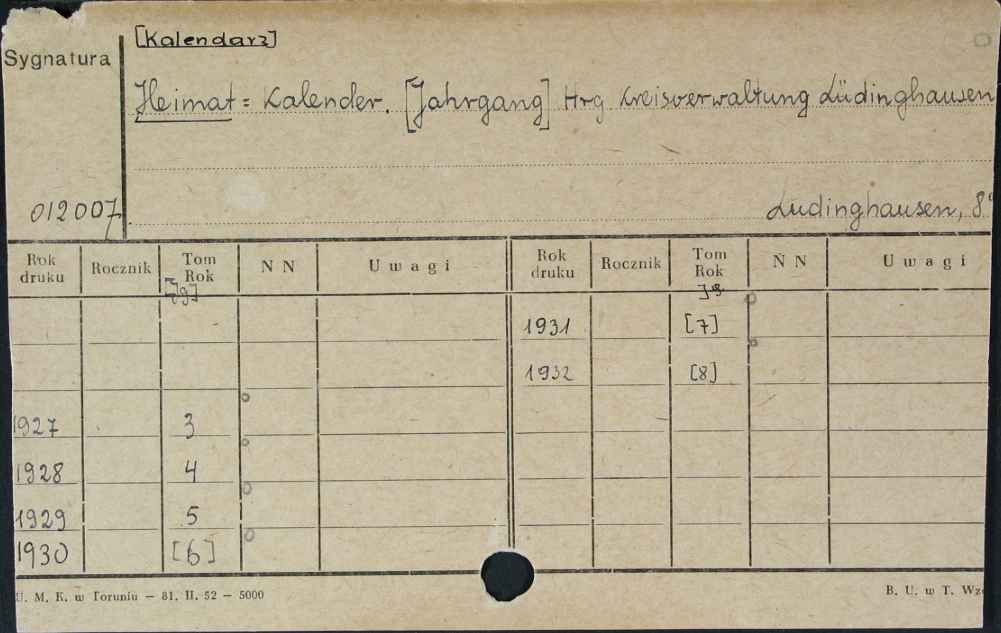 [Kalendarz]
Sygnatura
Heimat = Kalender. [Jahrgang] Hrg Kreisverwaltung Lüdinghausen
012007
Ludinghausen, 8°
Rok druku Rocznik Tom Rok N N Uwagi Rok druku Rocznik Tom Rok N N Uwagi
[Jg] Jg
1931 [7]
1932 [8]
1927 3
1928 4
1929 5
1930 [6]
U. M. K. w Toruniu — 81. II. 52 — 5000
B. U. w T. Wzó